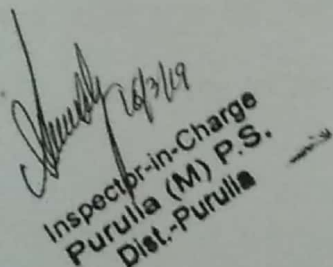 16/3/19
Inspector-in-Charge
Purulia (M) P.S.
Dist.-Purulia